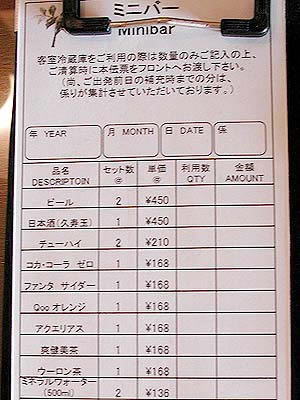 ミニバー
Minibar
客室冷蔵庫をご利用の際は数量のみご記入の上、
ご清算時に本伝票をフロントへお渡し下さい。
(尚、ご出発前日の補充時までの分は、
係りが集計させていただいております。)
年 YEAR 月 MONTH 日 DATE 係
品名 セット数 単価 利用数 金額
DESCRIPTOIN @ @ QTY AMOUNT
ビール 2 ¥450
日本酒(久寿玉) 1 ¥450
チューハイ 2 ¥210
コカ・コーラ ゼロ 1 ¥168
ファンタ サイダー 1 ¥168
Qoo オレンジ 1 ¥168
アクエリアス 1 ¥168
爽健美茶 1 ¥168
ウーロン茶 1 ¥168
ミネラルウォーター
(500ml) 2 ¥136